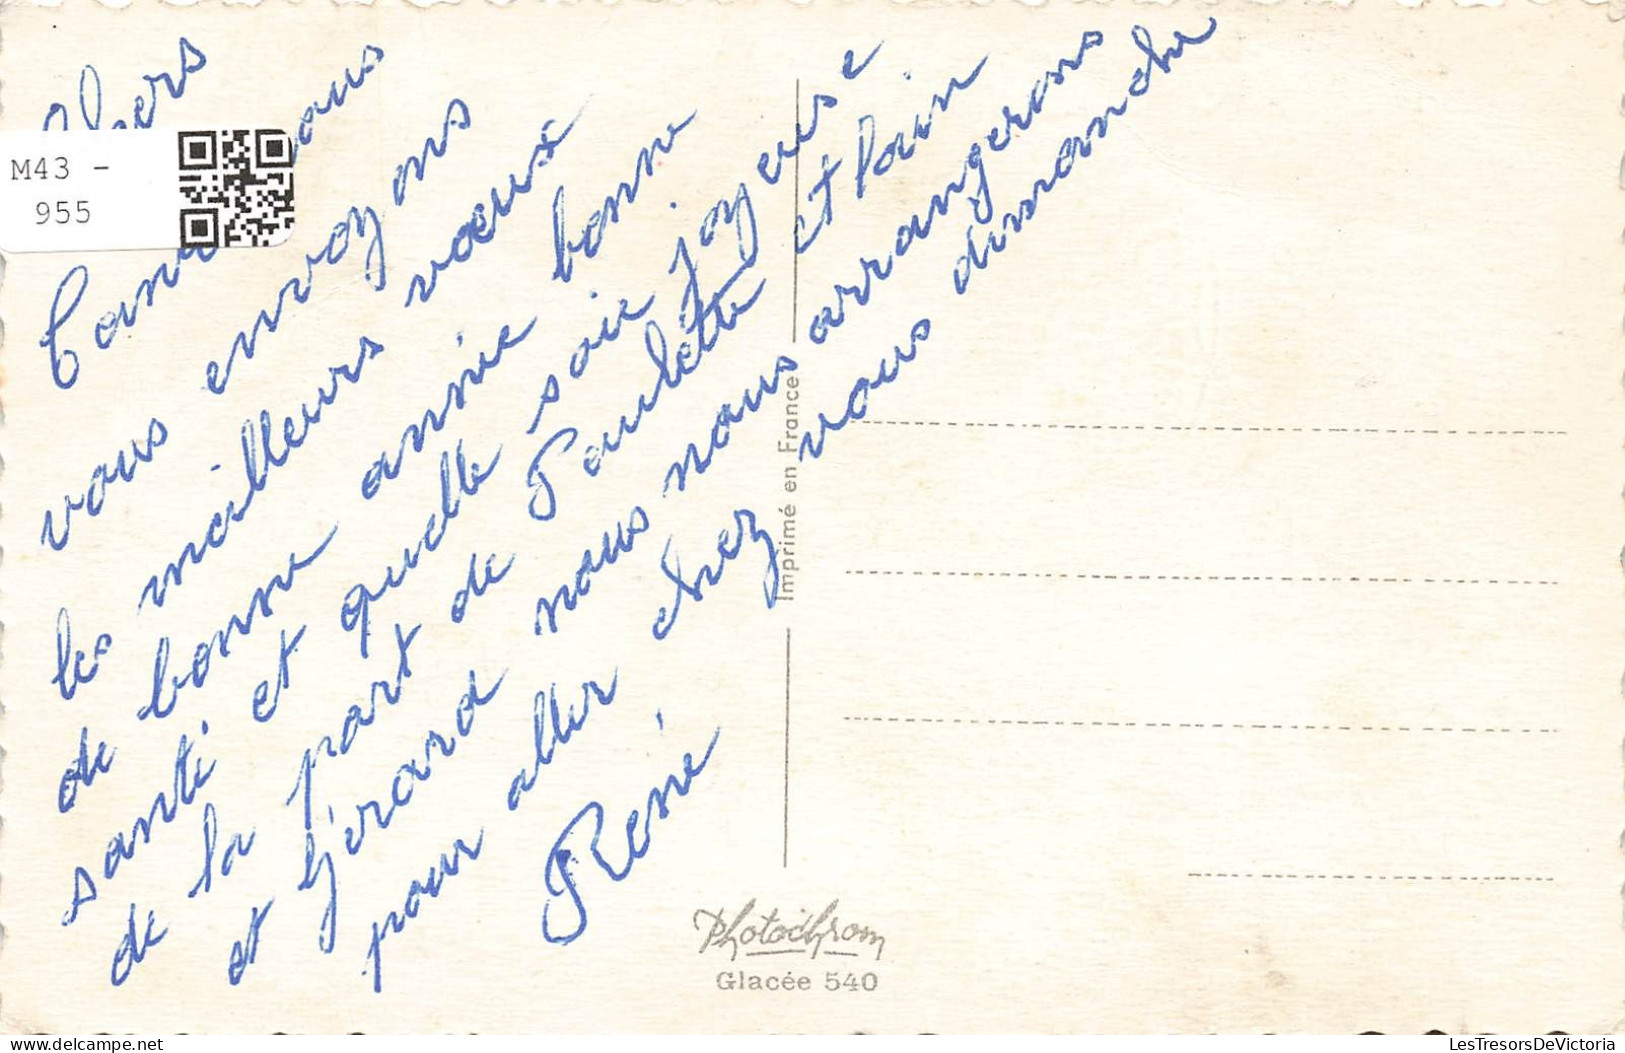 Chers
vous envoyons
les meilleurs vœux
de bonne année bonne
santé et quelle soie joyeuse
de la part de Paulette et loin
et Gérard nous nous arrangerons
pour aller chez vous dimanche
René
M43 -
955
Imprimé en France
Photochrom
Glacée 540
LesTresorsDeVictoria